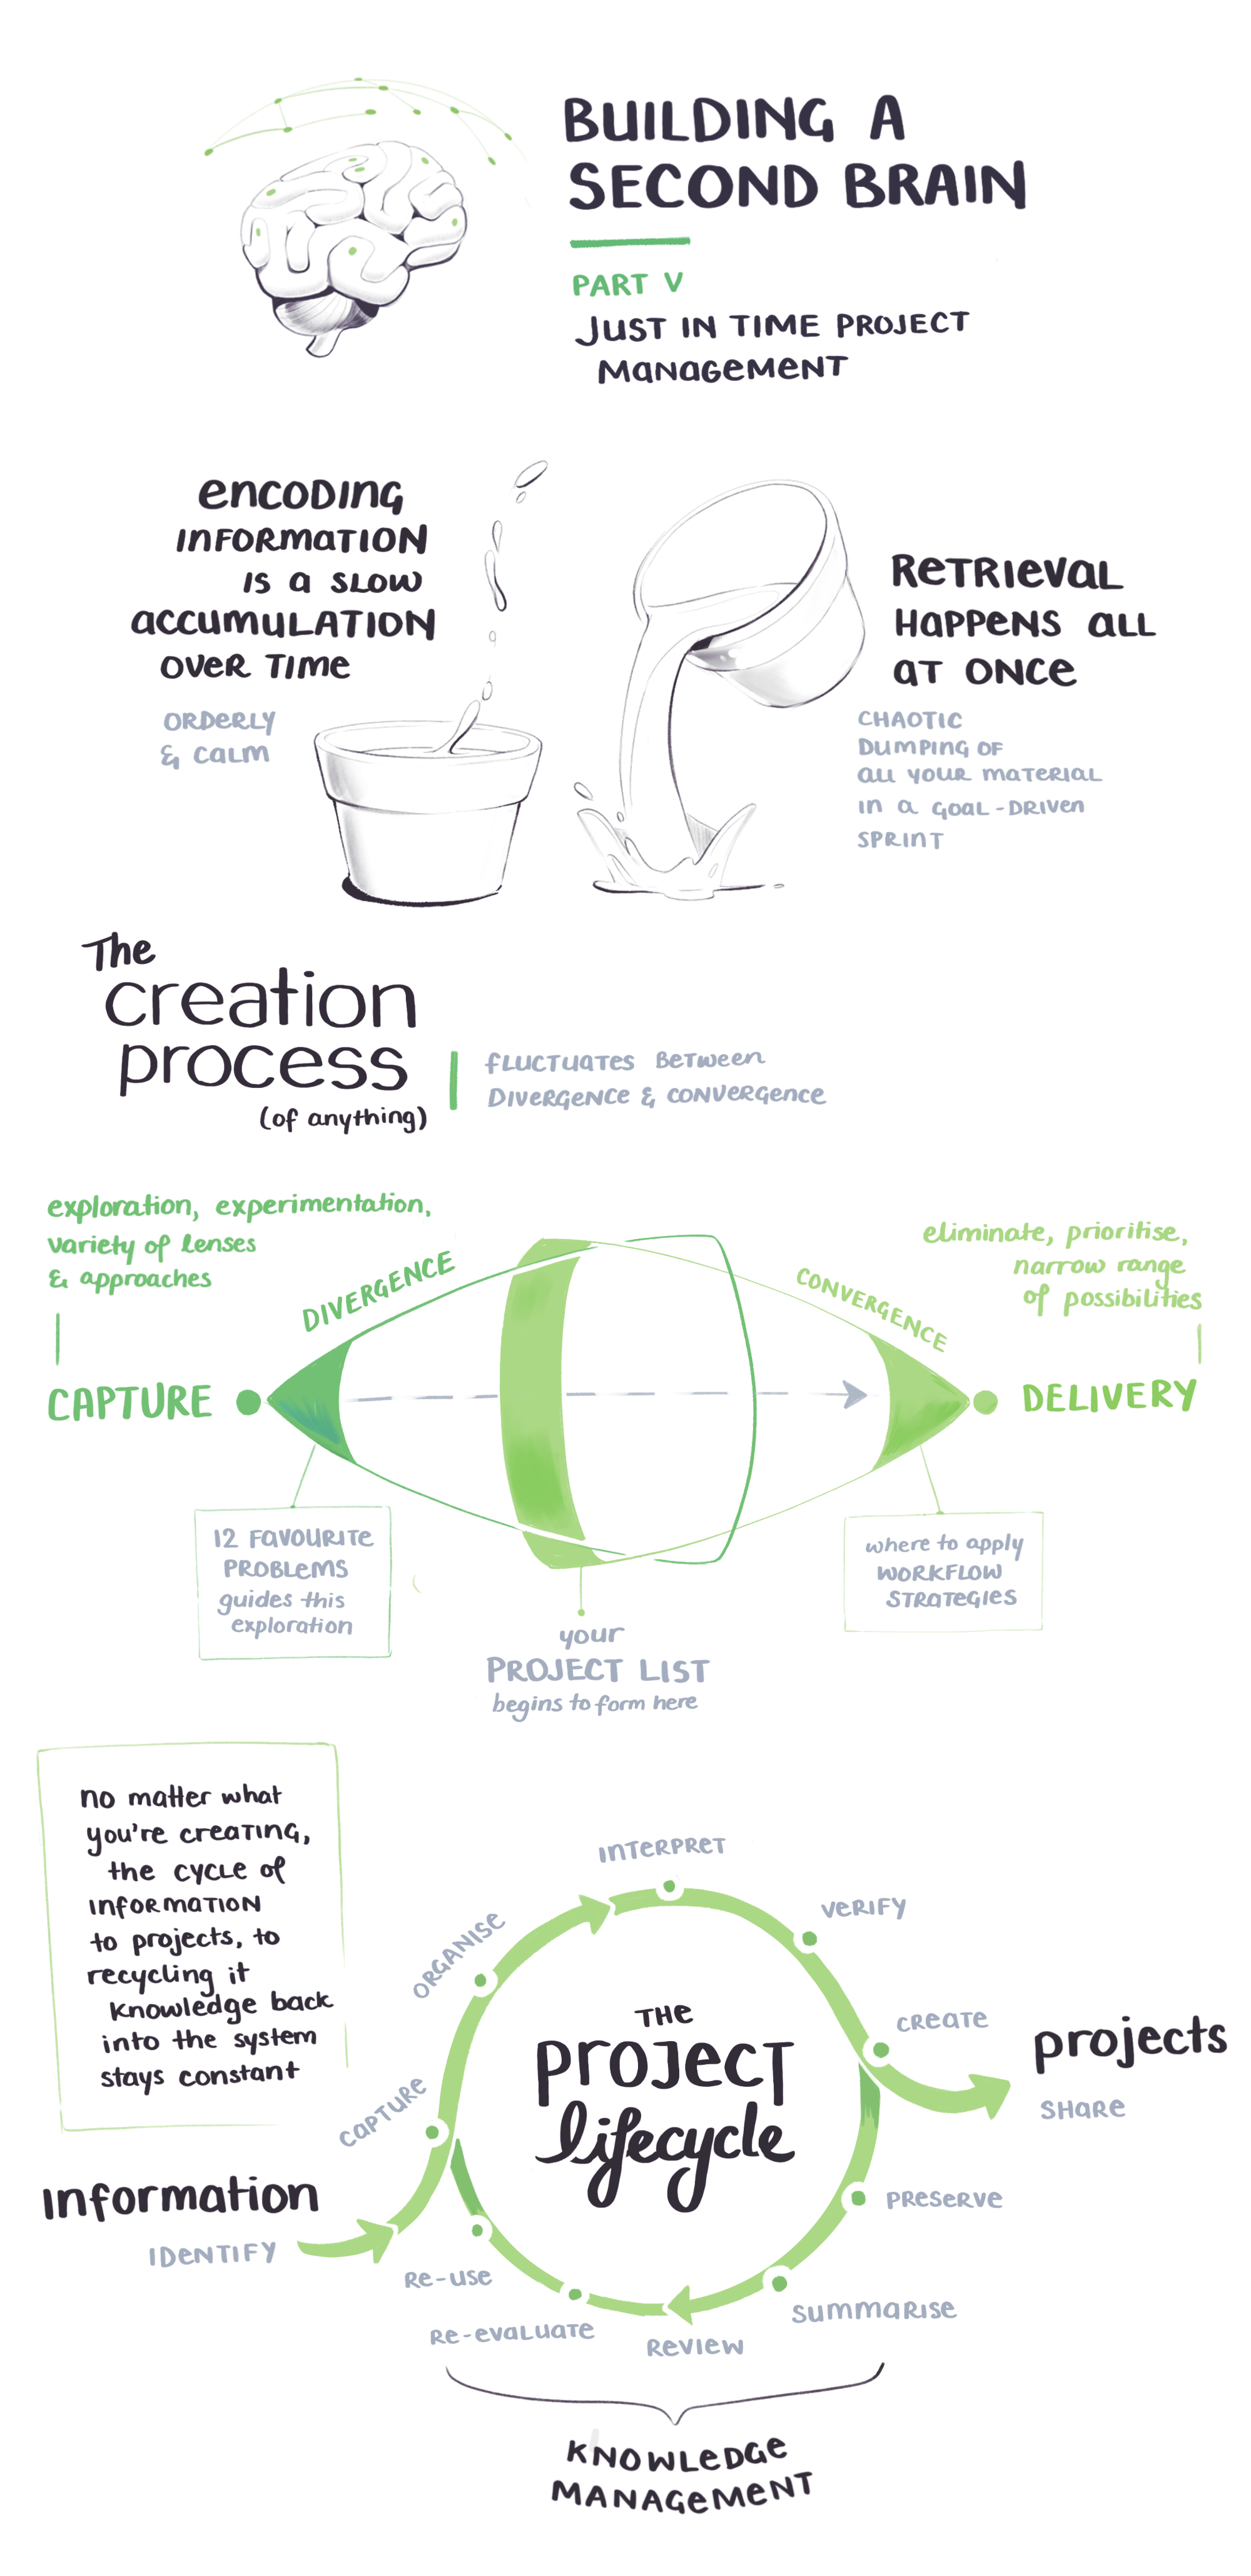 BUILDING A
SECOND BRAIN
PART V
JUST IN TIME PROJECT
MANAGEMENT
encoding
information
is a slow
accumulation
over time
orderly
& calm
Retrieval
happens all
at once
chaotic
dumping of
all your material
in a goal-driven
sprint
The
creation
process
(of anything)
fluctuates between
divergence & convergence
exploration, experimentation,
variety of lenses
& approaches
DIVERGENCE
CONVERGENCE
eliminate, prioritise,
narrow range
of possibilities
CAPTURE
DELIVERY
12 FAVOURITE
PROBLEMS
guides this
exploration
where to apply
WORKFLOW
STRATEGIES
your
PROJECT LIST
begins to form here
no matter what
you're creating,
the cycle of
information
to projects, to
recycling it
knowledge back
into the system
stays constant
INTERPRET
VERIFY
ORGANISE
CREATE
projects
SHARE
THE
project
lifecycle
CAPTURE
Information
IDENTIFY
PRESERVE
RE-USE
SUMMARISE
RE-EVALUATE
REVIEW
KNOWLEDGE
MANAGEMENT